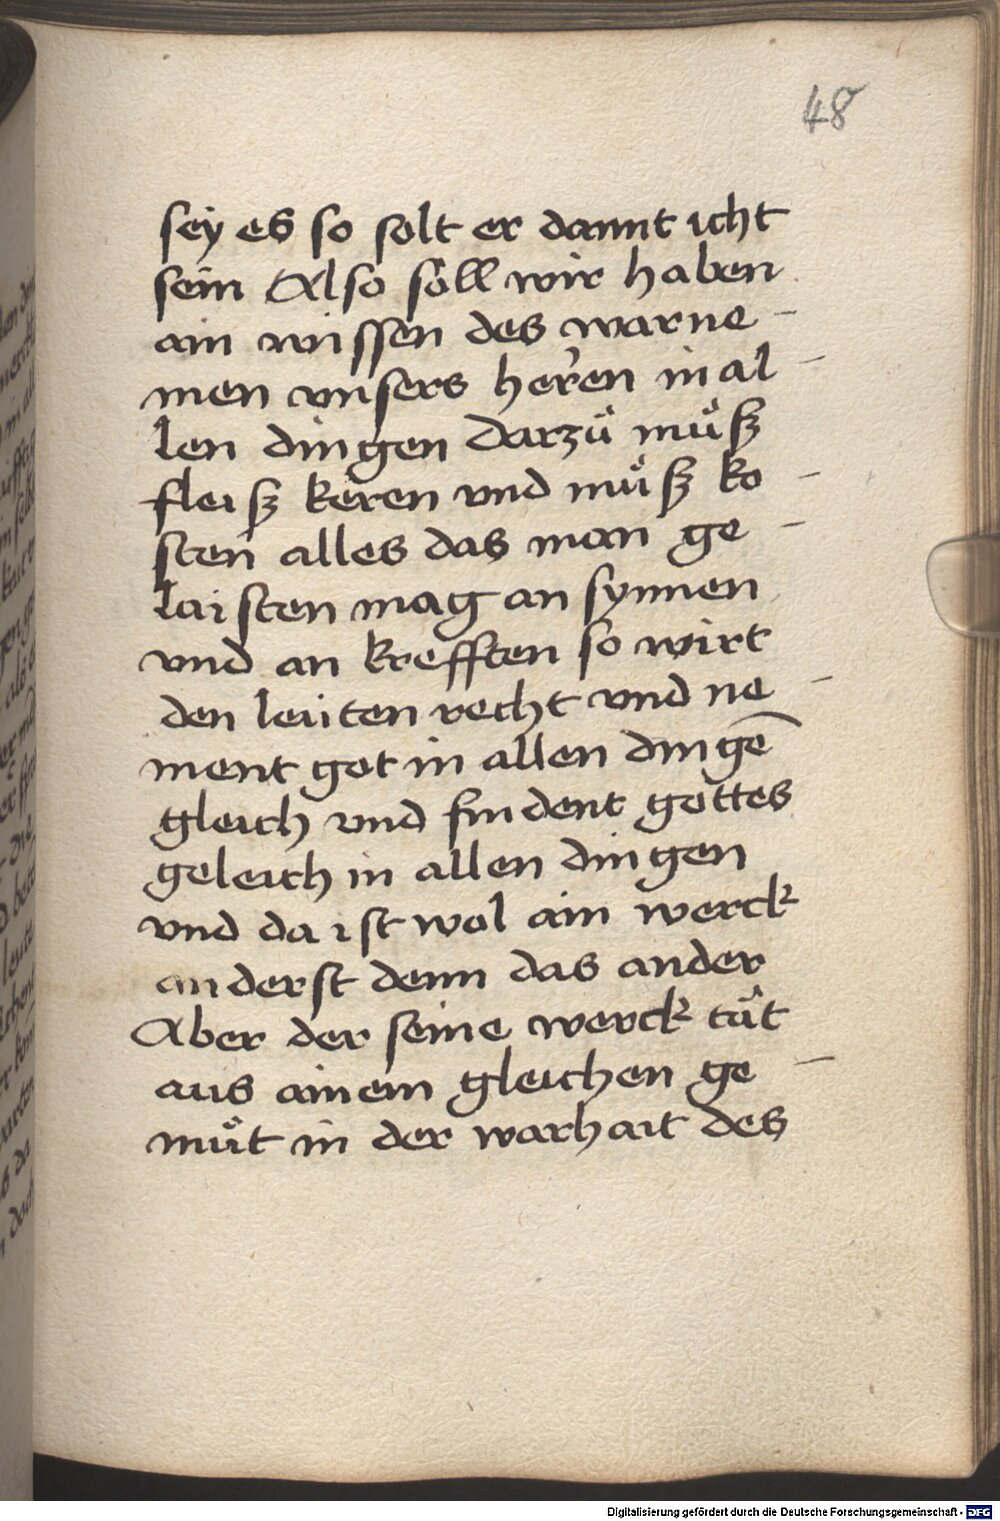 48
sey es so solt er dannt icht
sein Also söll wir haben
ain wissen des warne -
men vnsers herren in al -
len dingen darzů můsz
fleisz keren vnd můsz ko -
sten alles das man ge -
laisten mag an synnen
vnd an krefften so wirt
den leiiten recht vnd ne -
ment got in allen dingē
gleich vnd findent gottes
geleich in allen dingen
vnd da ist wol ain werck
anderst denn das ander
Aber der seine werck tůt
aus ainem gleichen ge -
můt in der warhait des
Digitalisierung gefördert durch die Deutsche Forschungsgemeinschaft - DFG